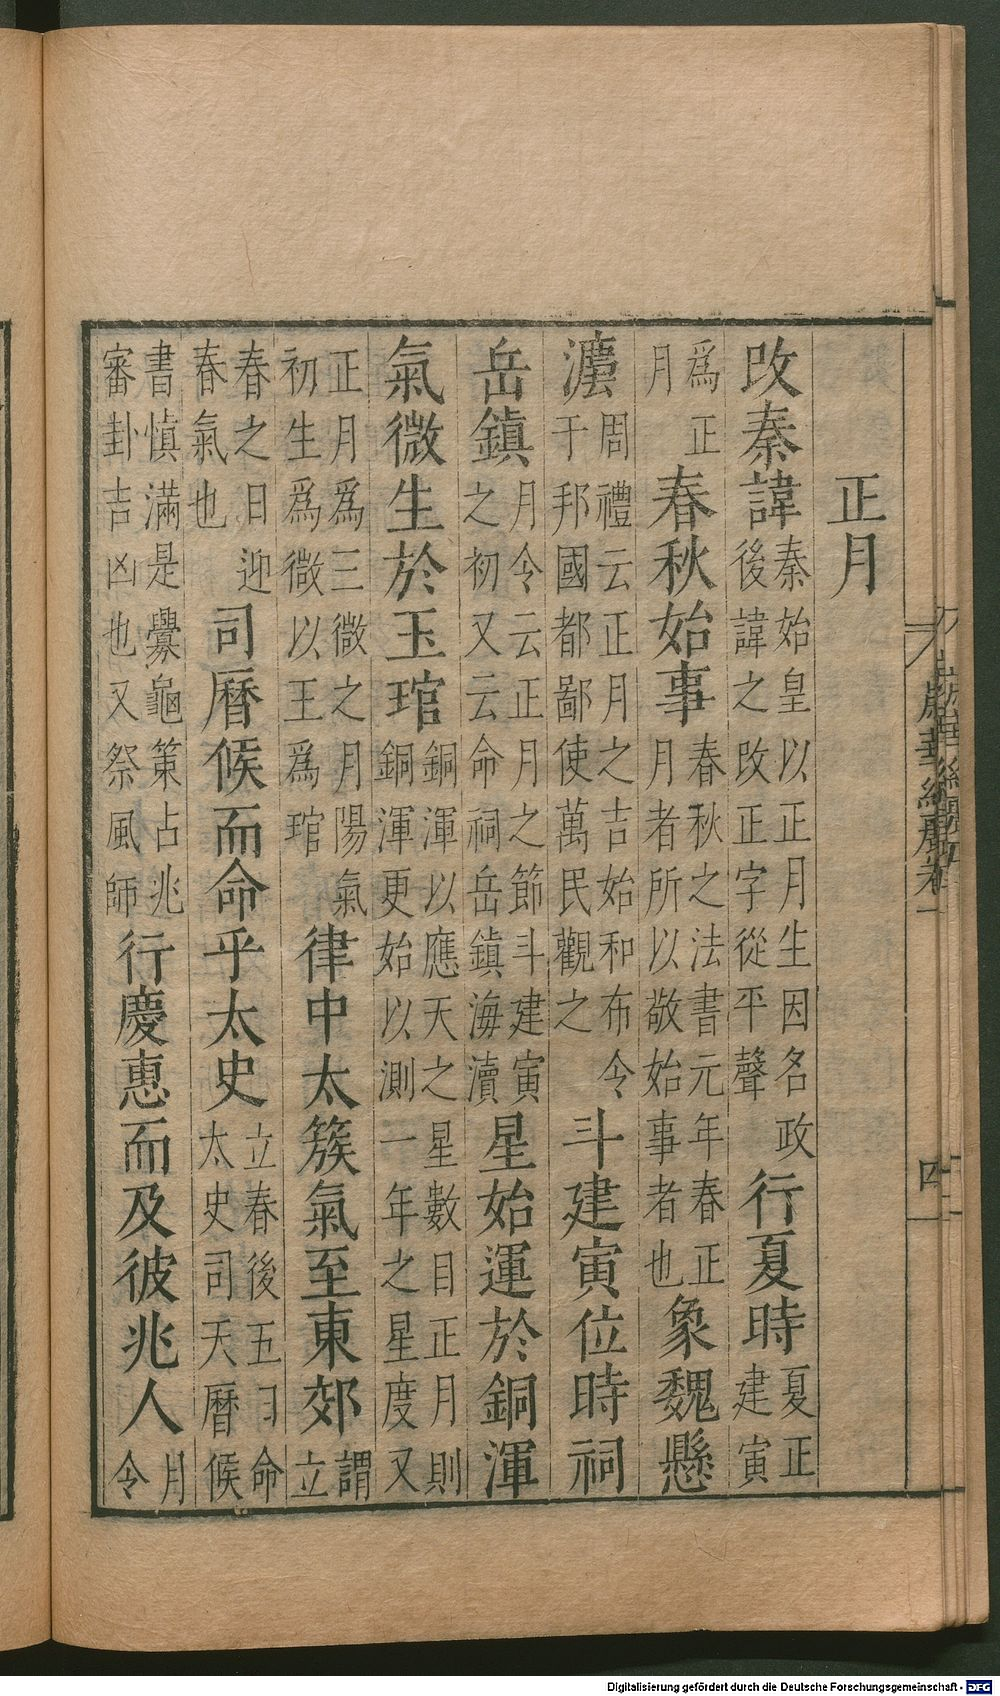 正月
改秦諱秦始皇以正月生因名政後諱之改正字從平聲行夏時夏正建寅
爲正月春秋始事春秋之法書元年春正月者所以敬始事者也象魏懸
灋周禮云正月之吉始和布令于邦國都鄙使萬民觀之斗建寅位時祠
岳鎮月令云正月之節斗建寅之初又云命祠岳鎮海瀆星始運於銅渾
氣微生於玉琯銅渾以應天之星數目正月則銅渾更始以測一年之星度又
正月爲三微之月陽氣初生爲微以王爲琯律中太簇氣至東郊謂立
春之日迎春氣也司曆候而命乎太史立春後五日命太史司天曆候
書慎滿是釁龜策占兆審卦吉凶也又祭風師行慶惠而及彼兆人月令
歲華紀麗卷一
四
Digitalisierung gefördert durch die Deutsche Forschungsgemeinschaft - DFG